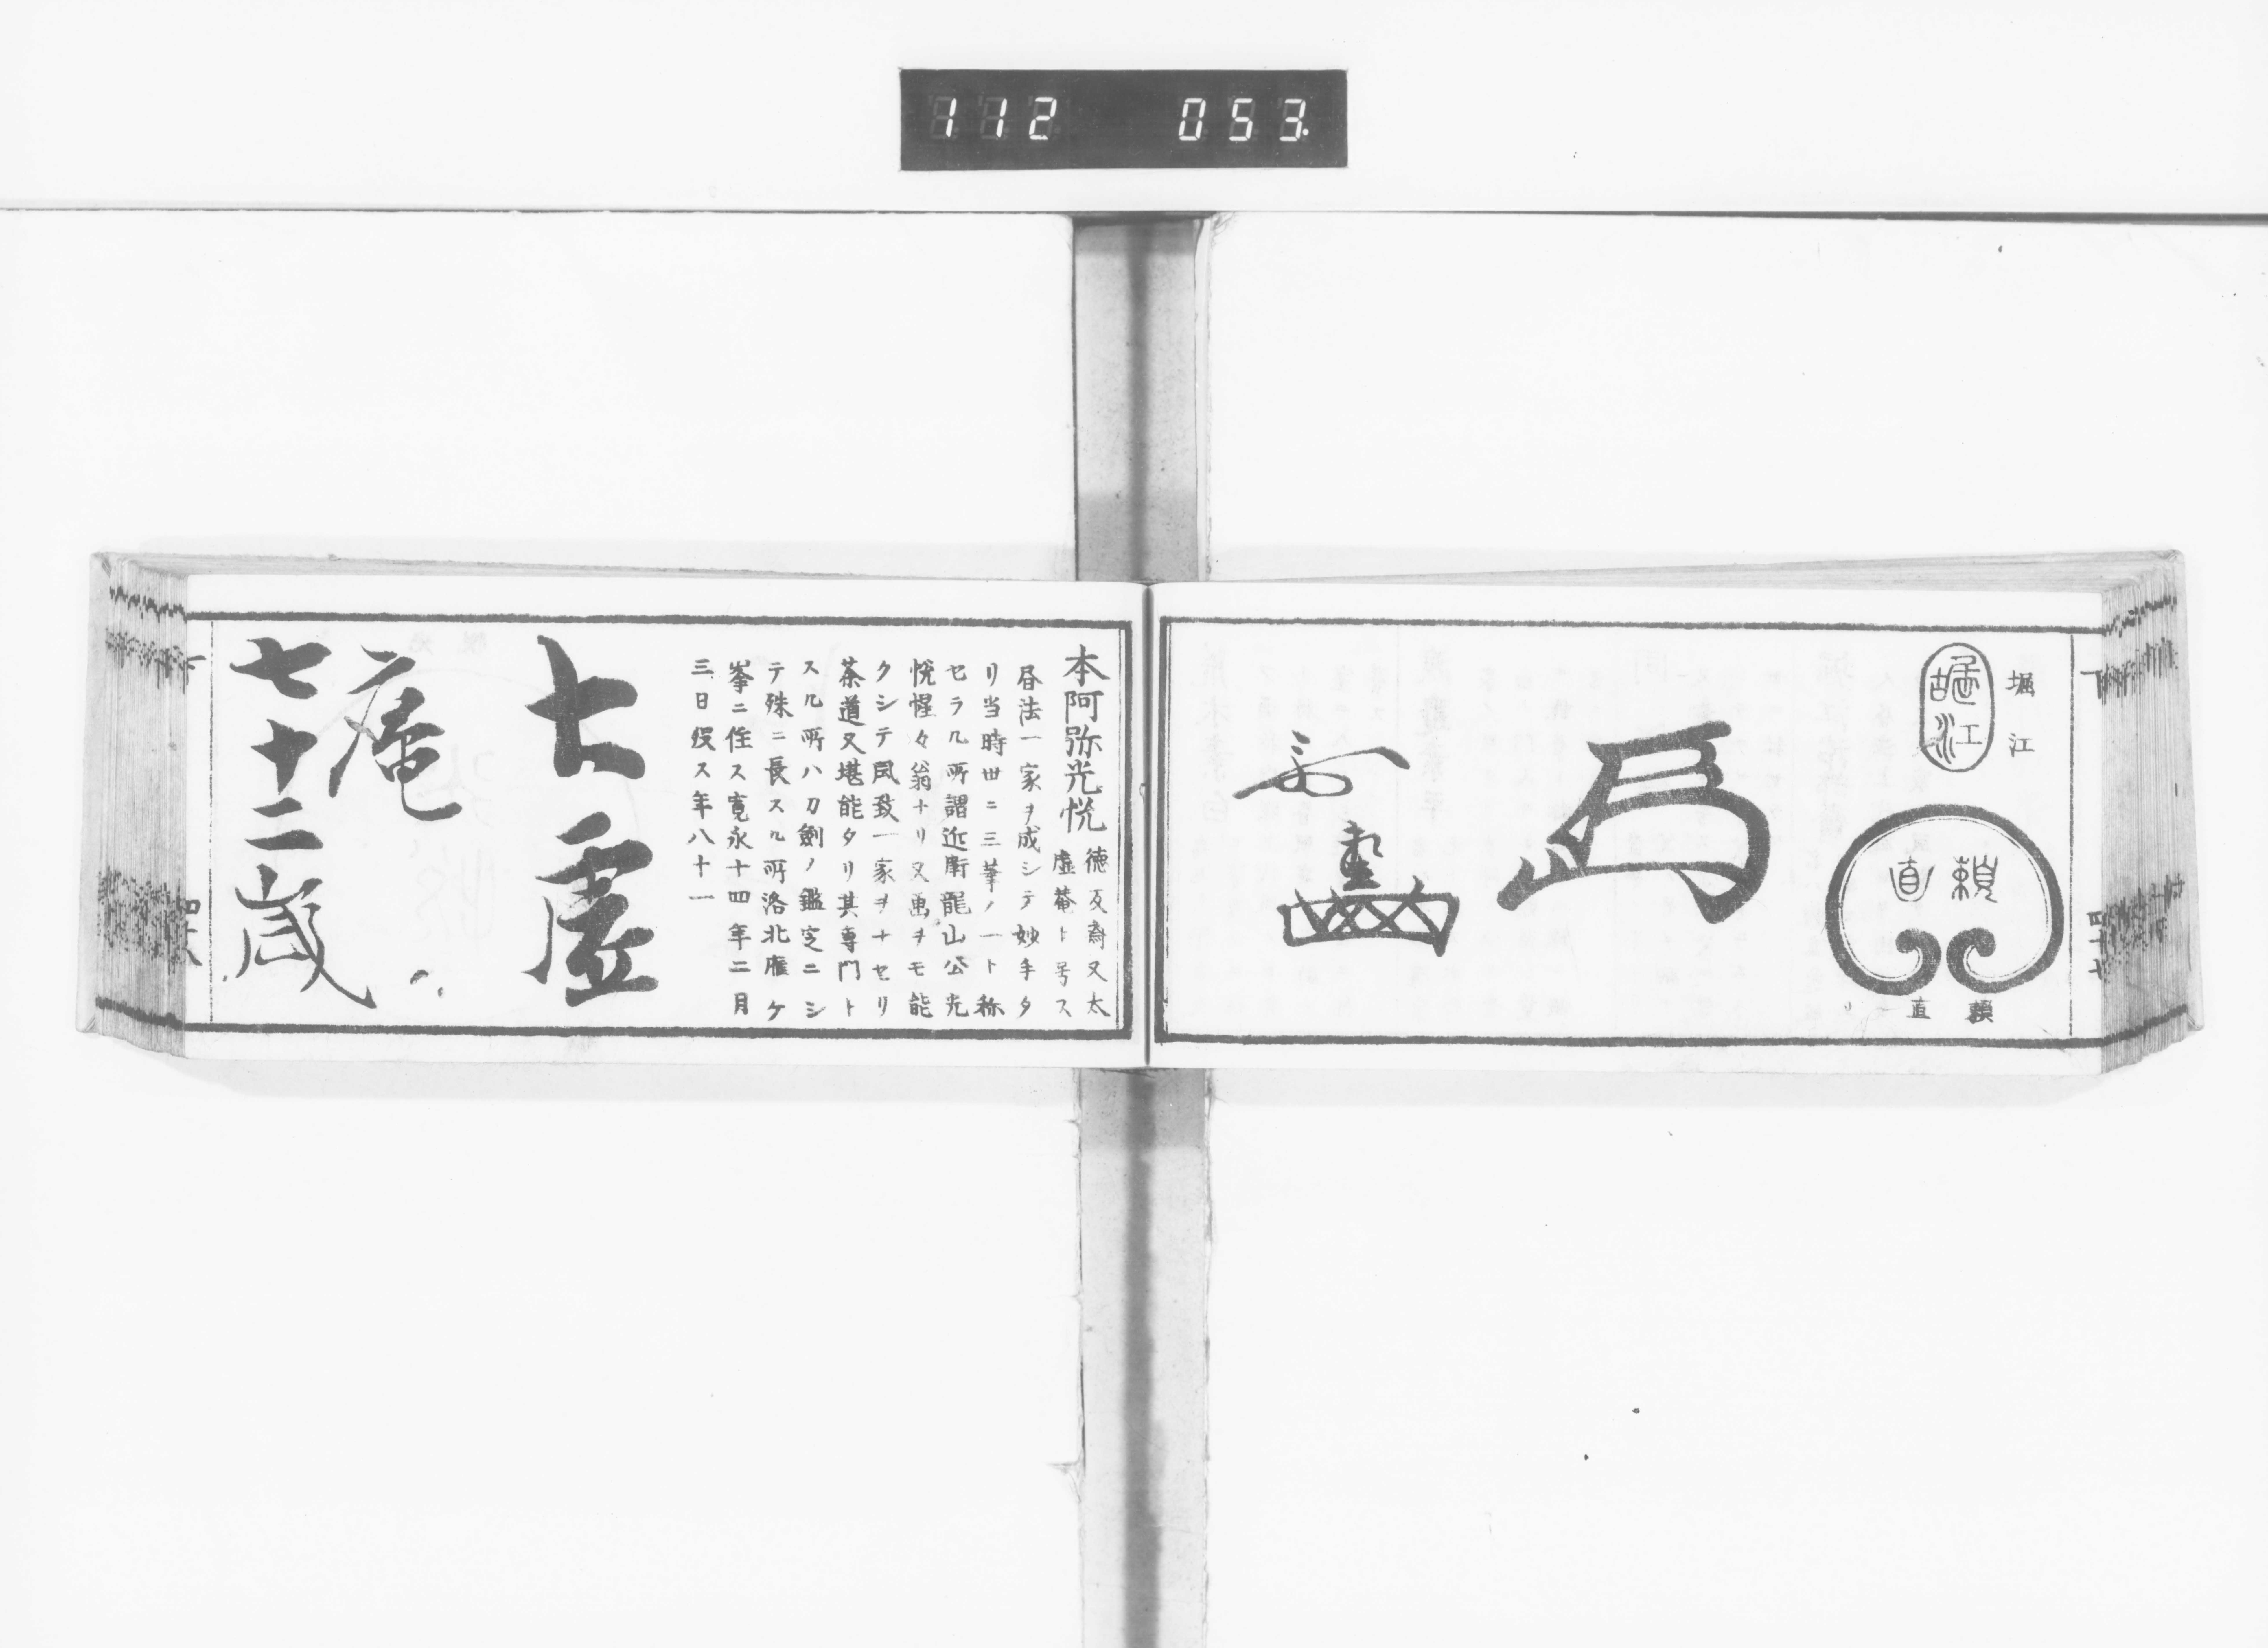 112 053.
堀江
堀江
頼直
頼直
本阿弥光悦
徳友斎又太
虚菴ト号ス
昼法一家ヲ成シテ妙手タ
リ当時世ニ三筆ノ一ト称
セラル所謂近衛龍山公光
悦惺々翁ナリ又画ヲモ能
クシテ風致一家ヲナセリ
茶道又堪能タリ其専門ト
スル所ハ刀劍ノ鑑定ニシ
テ殊ニ長スル所洛北鷹ケ
峯ニ住ス寛永十四年二月
三日歿ス年八十一
大虚
庵
七十二歳